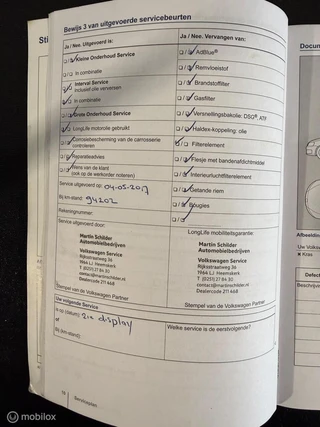 Bewijs 3 van uitgevoerde servicebeurten
Ja / Nee. Uitgevoerd is:
Kleine Onderhoud Service
In combinatie
Interval Service
Inclusief olie verversen
In combinatie
Grote Onderhoud Service
LongLife motorolie gebruikt
Corrosiebescherming van de carrosserie
controleren
Reparatieadvies
Wens van de klant
(ook op de werkorder noteren)
Service uitgevoerd op: 04-05-2017
Bij km-stand: 94202
Rekeningnummer:
Service uitgevoerd door:
Martin Schilder
Automobielbedrijven
Volkswagen Service
Rijksstraatweg 36
1964 LJ Heemskerk
T (0251) 27 84 30
contact@martinschilder.nl
Dealercode 211 468
Stempel van de Volkswagen Partner
Uw volgende Service
Is op (datum): zie display
of
Bij (km-stand):
Ja / Nee. Vervangen van:
AdBlue®
Remvloeistof
Brandstoffilter
Gasfilter
Versnellingsbakolie: DSQ®, ATF
Haldex-koppeling: olie
Filterelement
Flesje met bandenafdichtmiddel
Interieurluchtfilterelement
Getande riem
Bougies
LongLife mobiliteitsgarantie:
Martin Schilder
Automobielbedrijven
Volkswagen Service
Rijksstraatweg 36
1964 LJ Heemskerk
T (0251) 27 84 30
contact@martinschilder.nl
Dealercode 211 468
Stempel van de Volkswagen Partner
Welke service is de eerstvolgende?
Serviceplan
Docum
Afbeelding
Klas
Defect
Beschrijv
mobilox